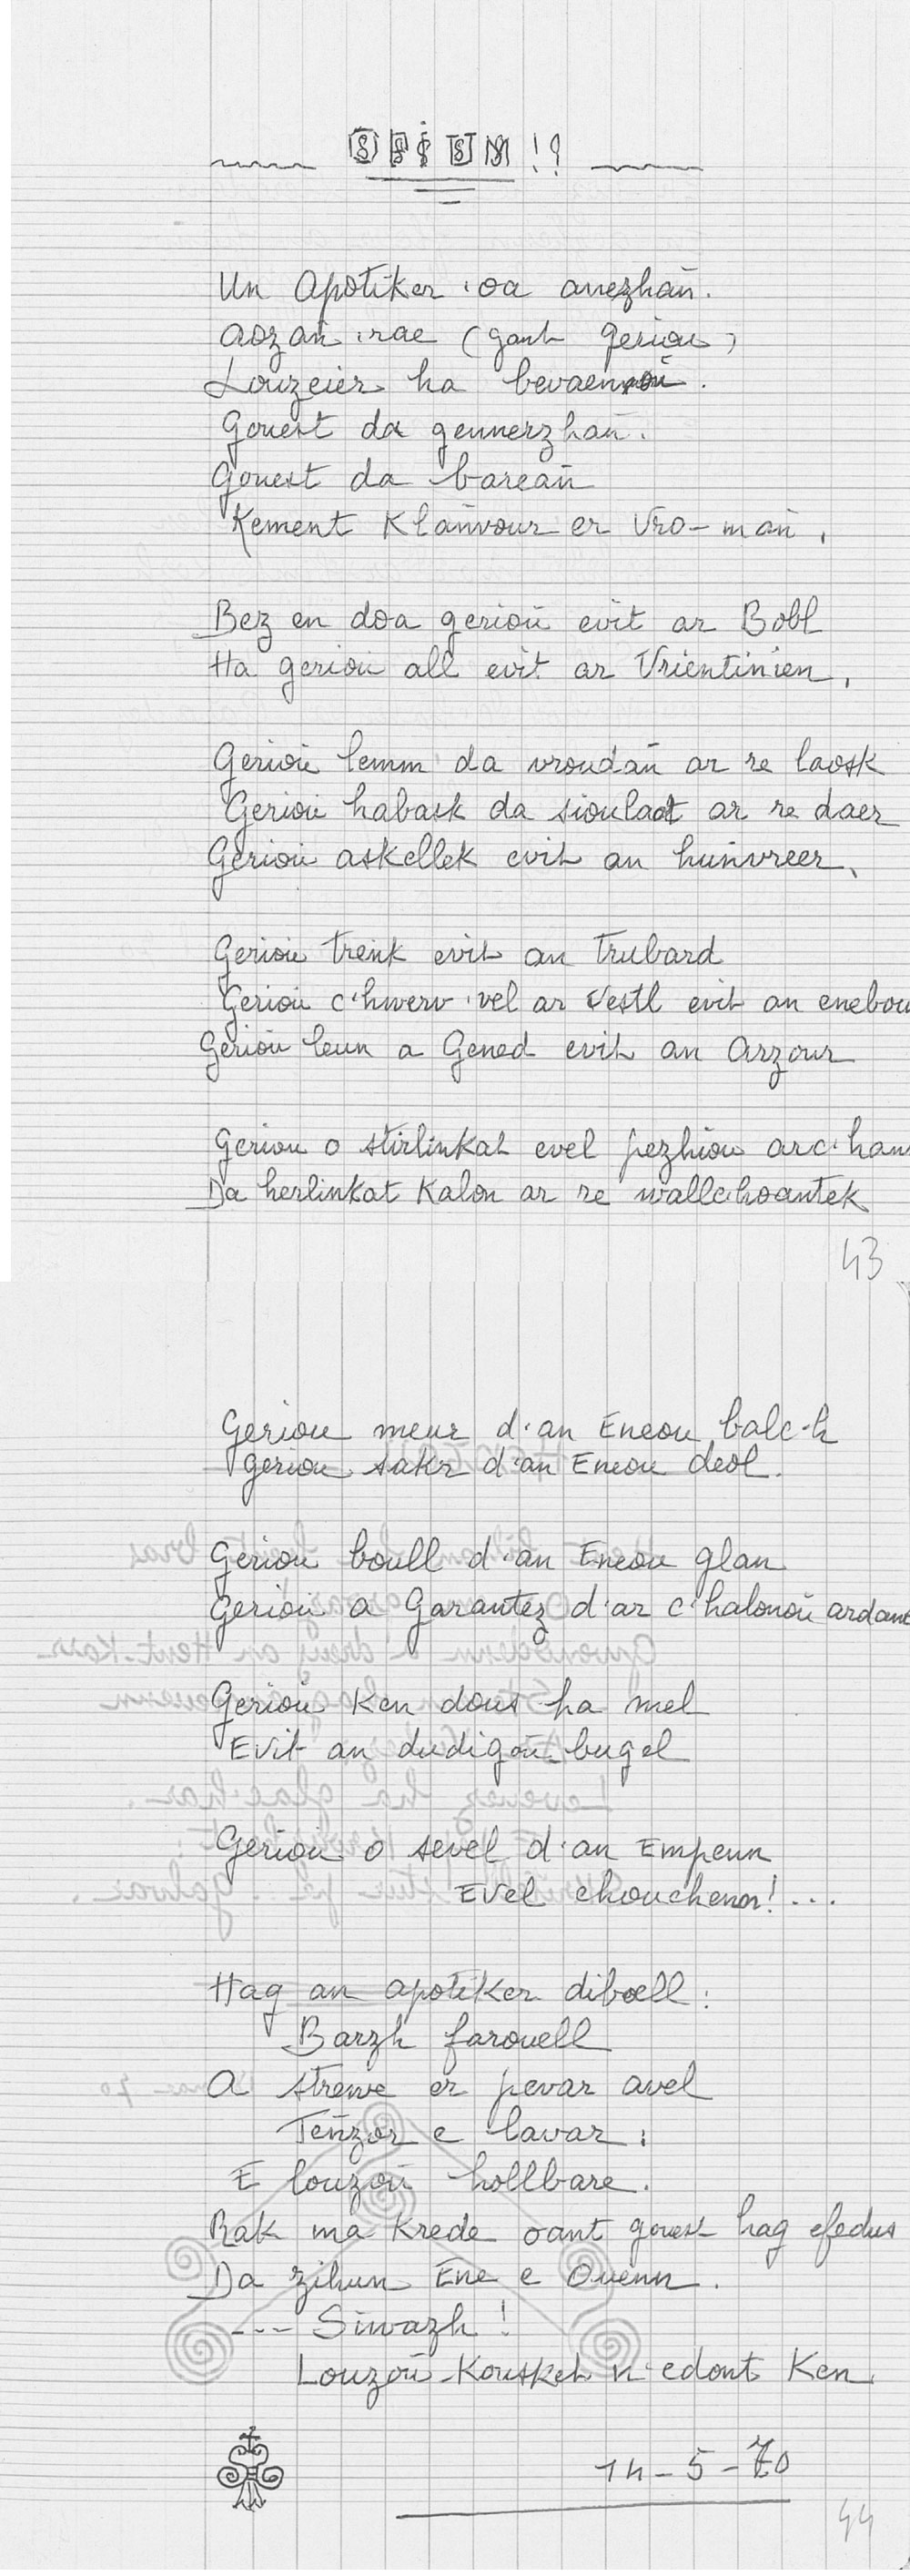 OPIUM !?
Un Apotiker 'oa anezhañ.
Aozañ 'rae (gant geriou)
Louzeier ha bevaennoù.
Gouest da gennerzhañ.
Gouest da bareañ
Kement Klañvour er Vro-mañ,
Bez en doa gerioù evit ar Bobl
Ha gerioù all evit ar Vrientinien,
Gerioù lemm da vroudañ ar re laosk
Gerioù habask da sioulaat ar re daer
Gerioù askellek evit an huñvreer,
Gerioù trenk evit an Trubard
Gerioù c'hwerv 'vel ar Vestl evit an enebou
Gerioù leun a Gened evit an Arzour
Geriou o stirlinkat evel pezhiou arc'han
Da herlinkat Kalon ar re wallc'hoantek
43
Geriou meur d'an Eneou balc'h
Geriou sakr d'an Eneou deol.
Geriou boull d'an Eneou glan
Gerioù a Garantez d'ar c'halonoù ardant
Gerioù Ken dous ha mel
Evit an dudigoù-bugel
Gerioù o sevel d'an Empenn
Evel chouchenn!...
Hag an apotiker diboell:
Barzh farouell
A strewe er pevar avel
Teñzor e lavar:
E louzoù hollbare.
Rak ma Krede oant gouest hag efedus
Da zihun Ene e Ouenn.
--- Siwazh !
Louzoù-Kousket n'edont Ken
14-5-70
44